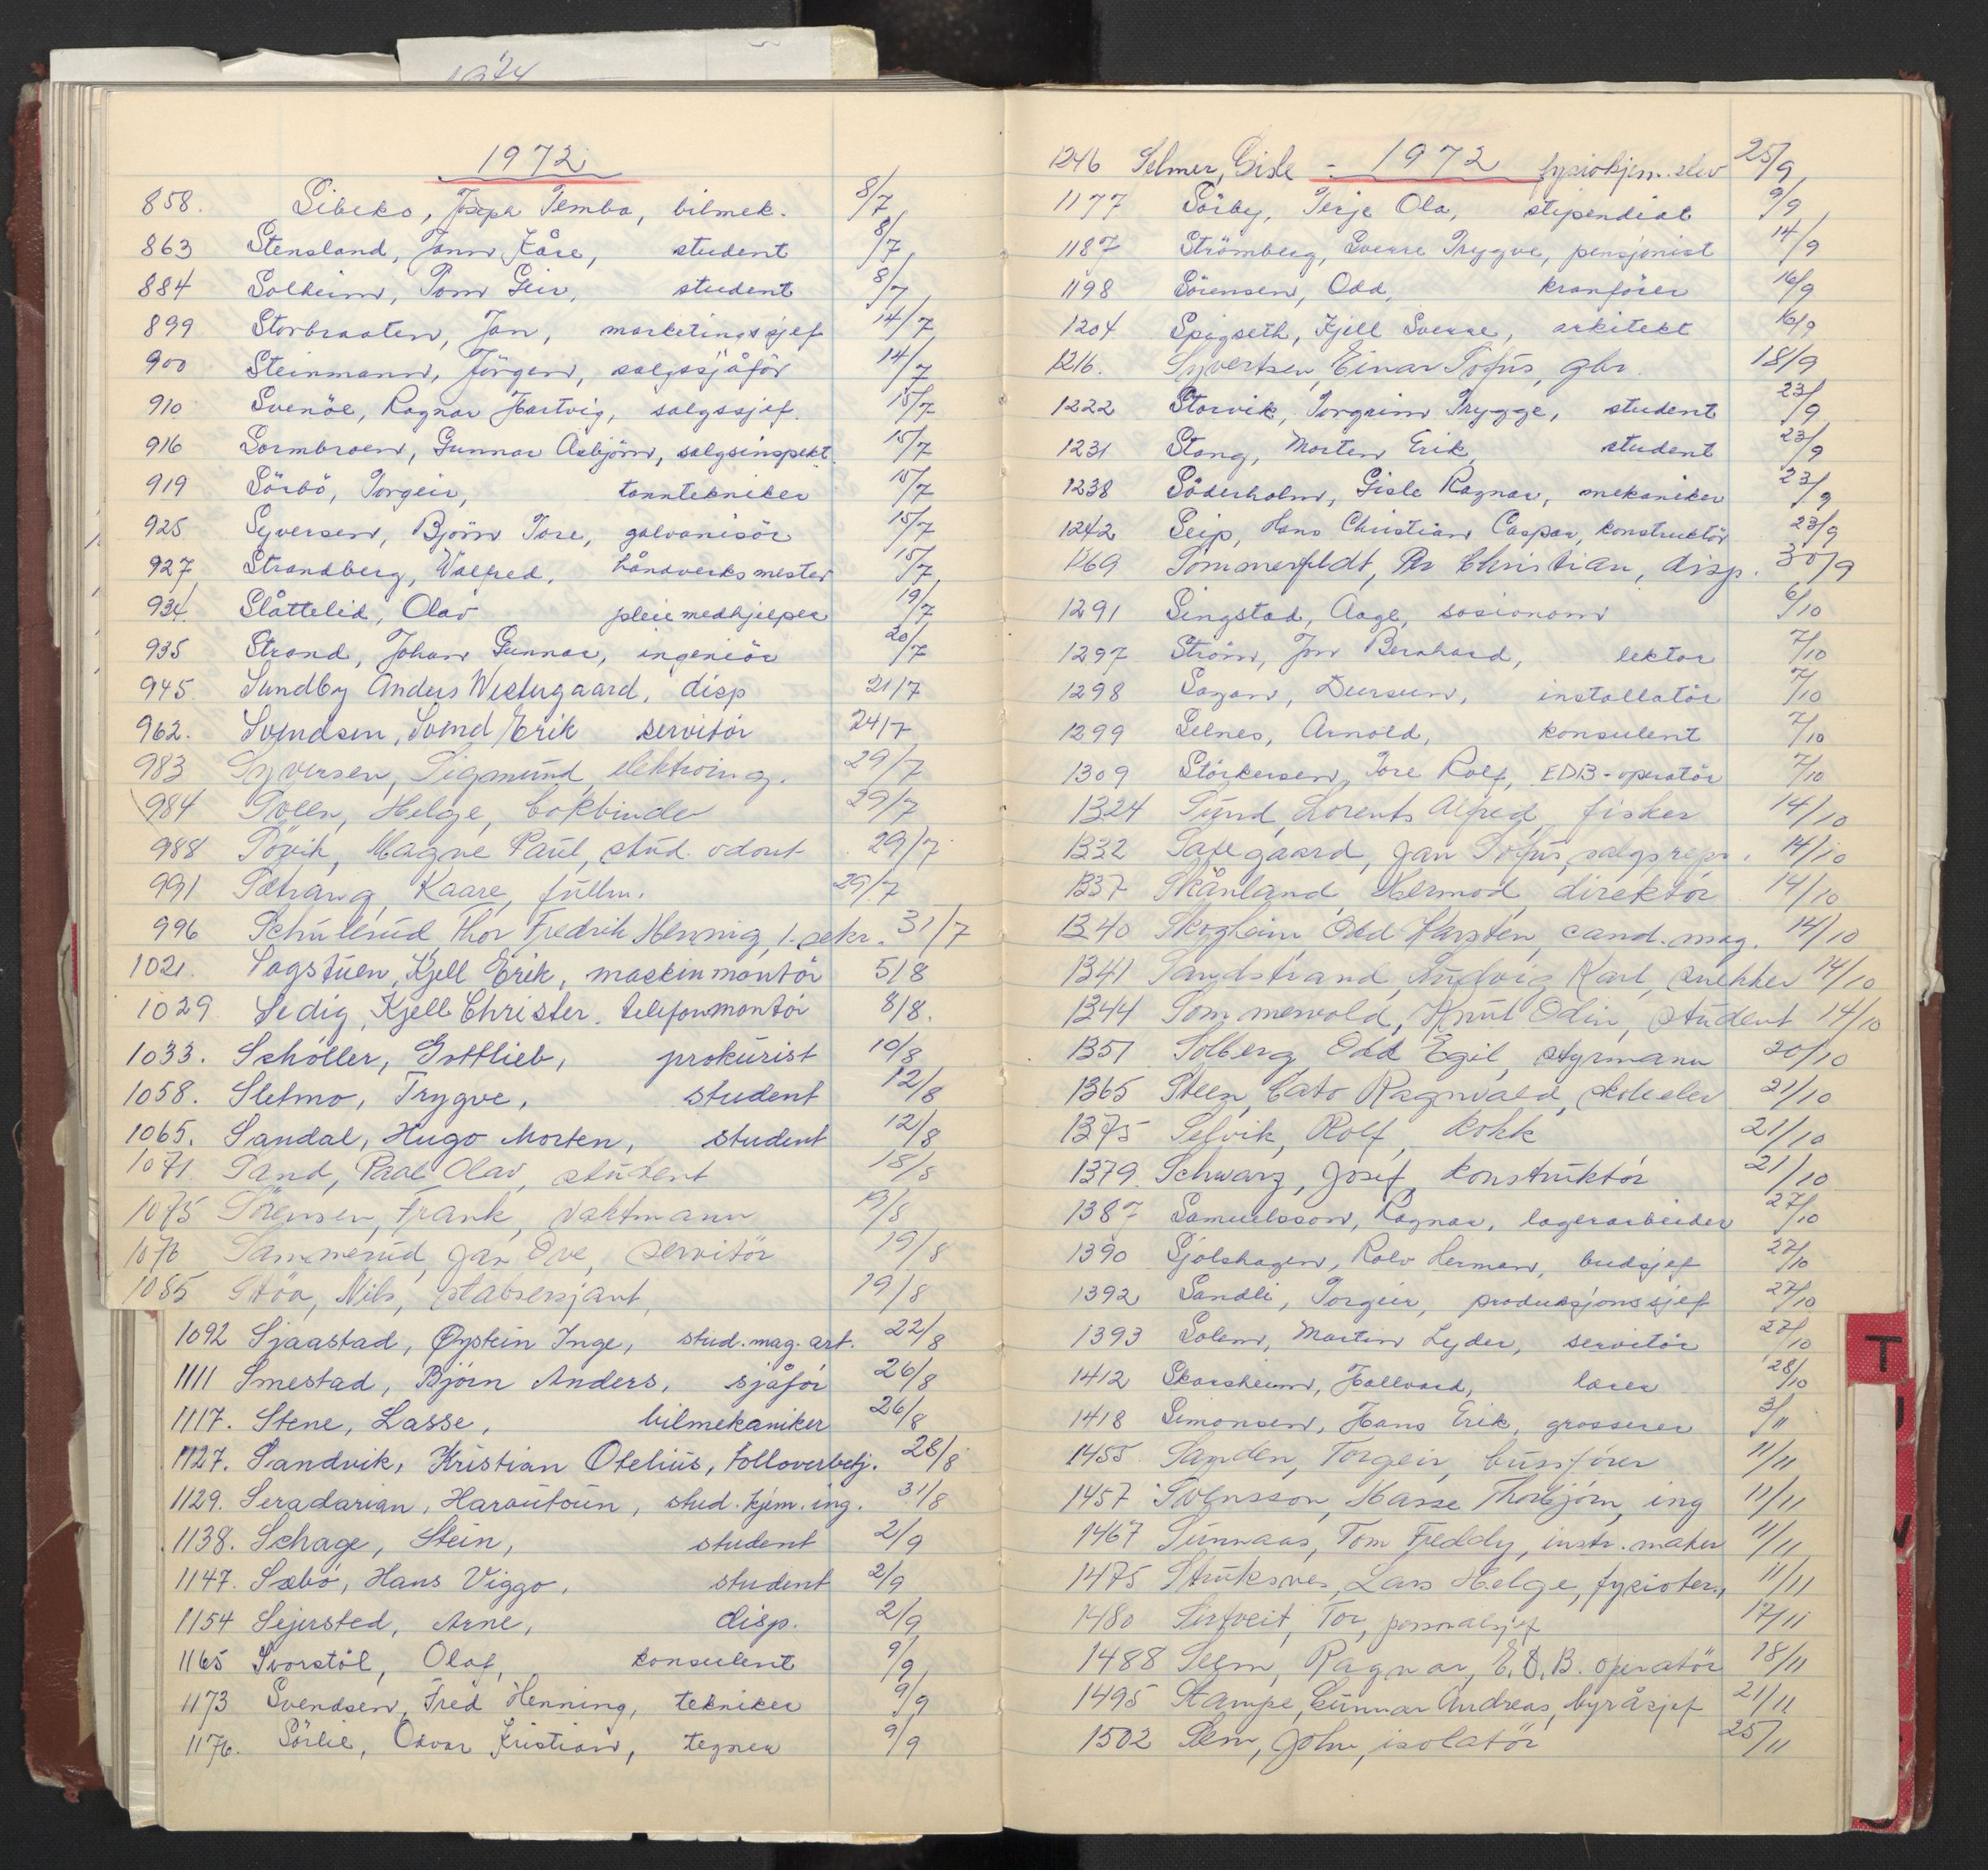 1974
1972
858. Sibeko, Joseph Temba, bilmek. 8/7
863 Stensland, Jann Kåre, student 8/7
884 Solheim, Tom Geir, student 8/7
899 Storbraaten, Jan, marketingssjef 14/7
900 Steinmann, Jörgen, salgssjåför 14/7
910 Svenöe, Ragnar Hartvig, salgssjef. 15/7
916 Sormbroen, Gunnar Asbjörn, salgsinspekt. 15/7
919 Sörbö, Torgeir, tanntekniker 15/7
925 Syversen, Björn Tore, galvanisör 15/7
927 Strandberg, Walfred, håndverksmester 15/7
934. Slåttelid, Olav pleiemedhjelper 19/7
935 Strand, Johan Gunnar, ingeniör 20/7
945. Sundby Anders Westergaard, disp 21/7
962. Svendsen, Svend Erik servitör 24/7
983 Syversen, Sigmund, elektroing. 29/7
984 Sveen, Helge, bokbinder 29/7
988 Sövik, Magne Paul, stud. odont 29/7
991 Sætrang, Kaare, fullm. 29/7
996 Schulerud, Thor Fredrik Henning, 1. sekr. 31/7
1021. Sagstuen, Kjell Erik, maskinmontör 5/8
1029 Sedig, Kjell Christer. telefonmontör 8/8.
1033. Schöller, Gottlieb, prokurist 10/8
1058. Sletmo, Trygve, student 12/8
1065. Sandal, Hugo Morten, student 12/8
1071. Sand, Paal Olav, student 18/8
1075 Sörensen, Frank, vaktmann 19/8
1076 Sammerud, Jan Ove, servitör 19/8
1085 Stöa, Nils, stabsersjant, 19/8
1092 Sjaastad, Øystein Inge, stud. mag. art. 22/8
1111 Smestad, Björn Anders, sjåför 26/8
1117. Stene, Lasse, bilmekaniker 26/8
1127. Sandvik, Kristian Otelius, tolloverbetj. 28/8
1129. Seradarian, Haroutoun, stud. kjem. ing. 31/8
1138. Schage, Stein, student 2/9
1147. Sæbö, Hans Viggo, student 2/9
1154 Sejersted, Arne, disp. 2/9
1165 Svorstöl, Olaf, konsulent 9/9
1173 Svendsen, Fred Henning, tekniker 9/9
1176. Sörlie, Odvar Kristian, tegner 9/9
1246 Selmer, Gisle - 1972 fysiokjem. elev 25/9
1177 Sörby, Terje Ola, stipendiat 9/9
1187 Strömberg, Sverre Trygve, pensjonist 14/9
1198 Sörensen, Odd, kranförer 16/9
1204 Spigseth, Kjell Sverre, arkitekt 16/9
1216. Syvertsen, Einar Tofus, gbr. 18/9
1222 Storvik, Torgrim Trygge, student 23/9
1231 Stang, Morten Erik, student 23/9
1238 Söderholm, Gisle Ragnar, mekaniker 23/9
1242 Seip, Hans Christian Caspar, konstruktör 23/9
1269 Sommerfeldt, Per Christian, disp. 30/9
1291 Singstad, Aage, sosionom 6/10
1297 Ström, Jon Bernhard, lektor 7/10
1298 Sazan, Dursun, installatör 7/10
1299 Selnes, Arnold, konsulent 7/10
1309 Störkersen, Tore Rolf, EDB-operatör 7/10
1324 Sund, Lorents Alfred, fisker 14/10
1332 Saxegaard, Jan Tofus, salgsrepr. 14/10
1337 Skånland, Hermod, direktör 14/10
1340 Skogheim Odd Karsten, cand. mag. 14/10
1341 Sandstrand, Ludvig Karl, snekker 14/10
1344 Sommervold, Knut Odin, student 14/10
1351 Solberg, Odd Egil, styrmann 20/10
1365 Steen, Cato Ragnvald, skoleelev 21/10
1375 Selvik, Rolf, kokk 21/10
1379. Schwarz, Josef, konstruktör 21/10
1387 Samuelsson, Ragnar, lagerarbeider 27/10
1390 Sjölshagen, Rolv Herman, budsjef 27/10
1392 Sandli, Torgeir, produksjonssjef 27/10
1393 Solem, Martin Lyder, servitör 27/10
1412 Skarsheim, Hallvard, lærer 28/10
1418 Simonsen, Hans Erik, grosserer 3/11
1455. Sanden, Torgeir, bussförer 11/11
1457 Svensson, Hasse Thorbjörn, ing 11/11
1467 Sunnaas, Tom Freddy, instr. maker 11/11
1475 Struksnes, Lars Helge, fysioter., 11/11
1480 Sirtveit, Tor, personalsjef 17/11
1488 Seem, Ragnar, E.D.B. operatör 18/11
1495 Stampe, Gunnar Andreas, byråsjef 21/11
1502 Slem, John, isolatör 25/11
T